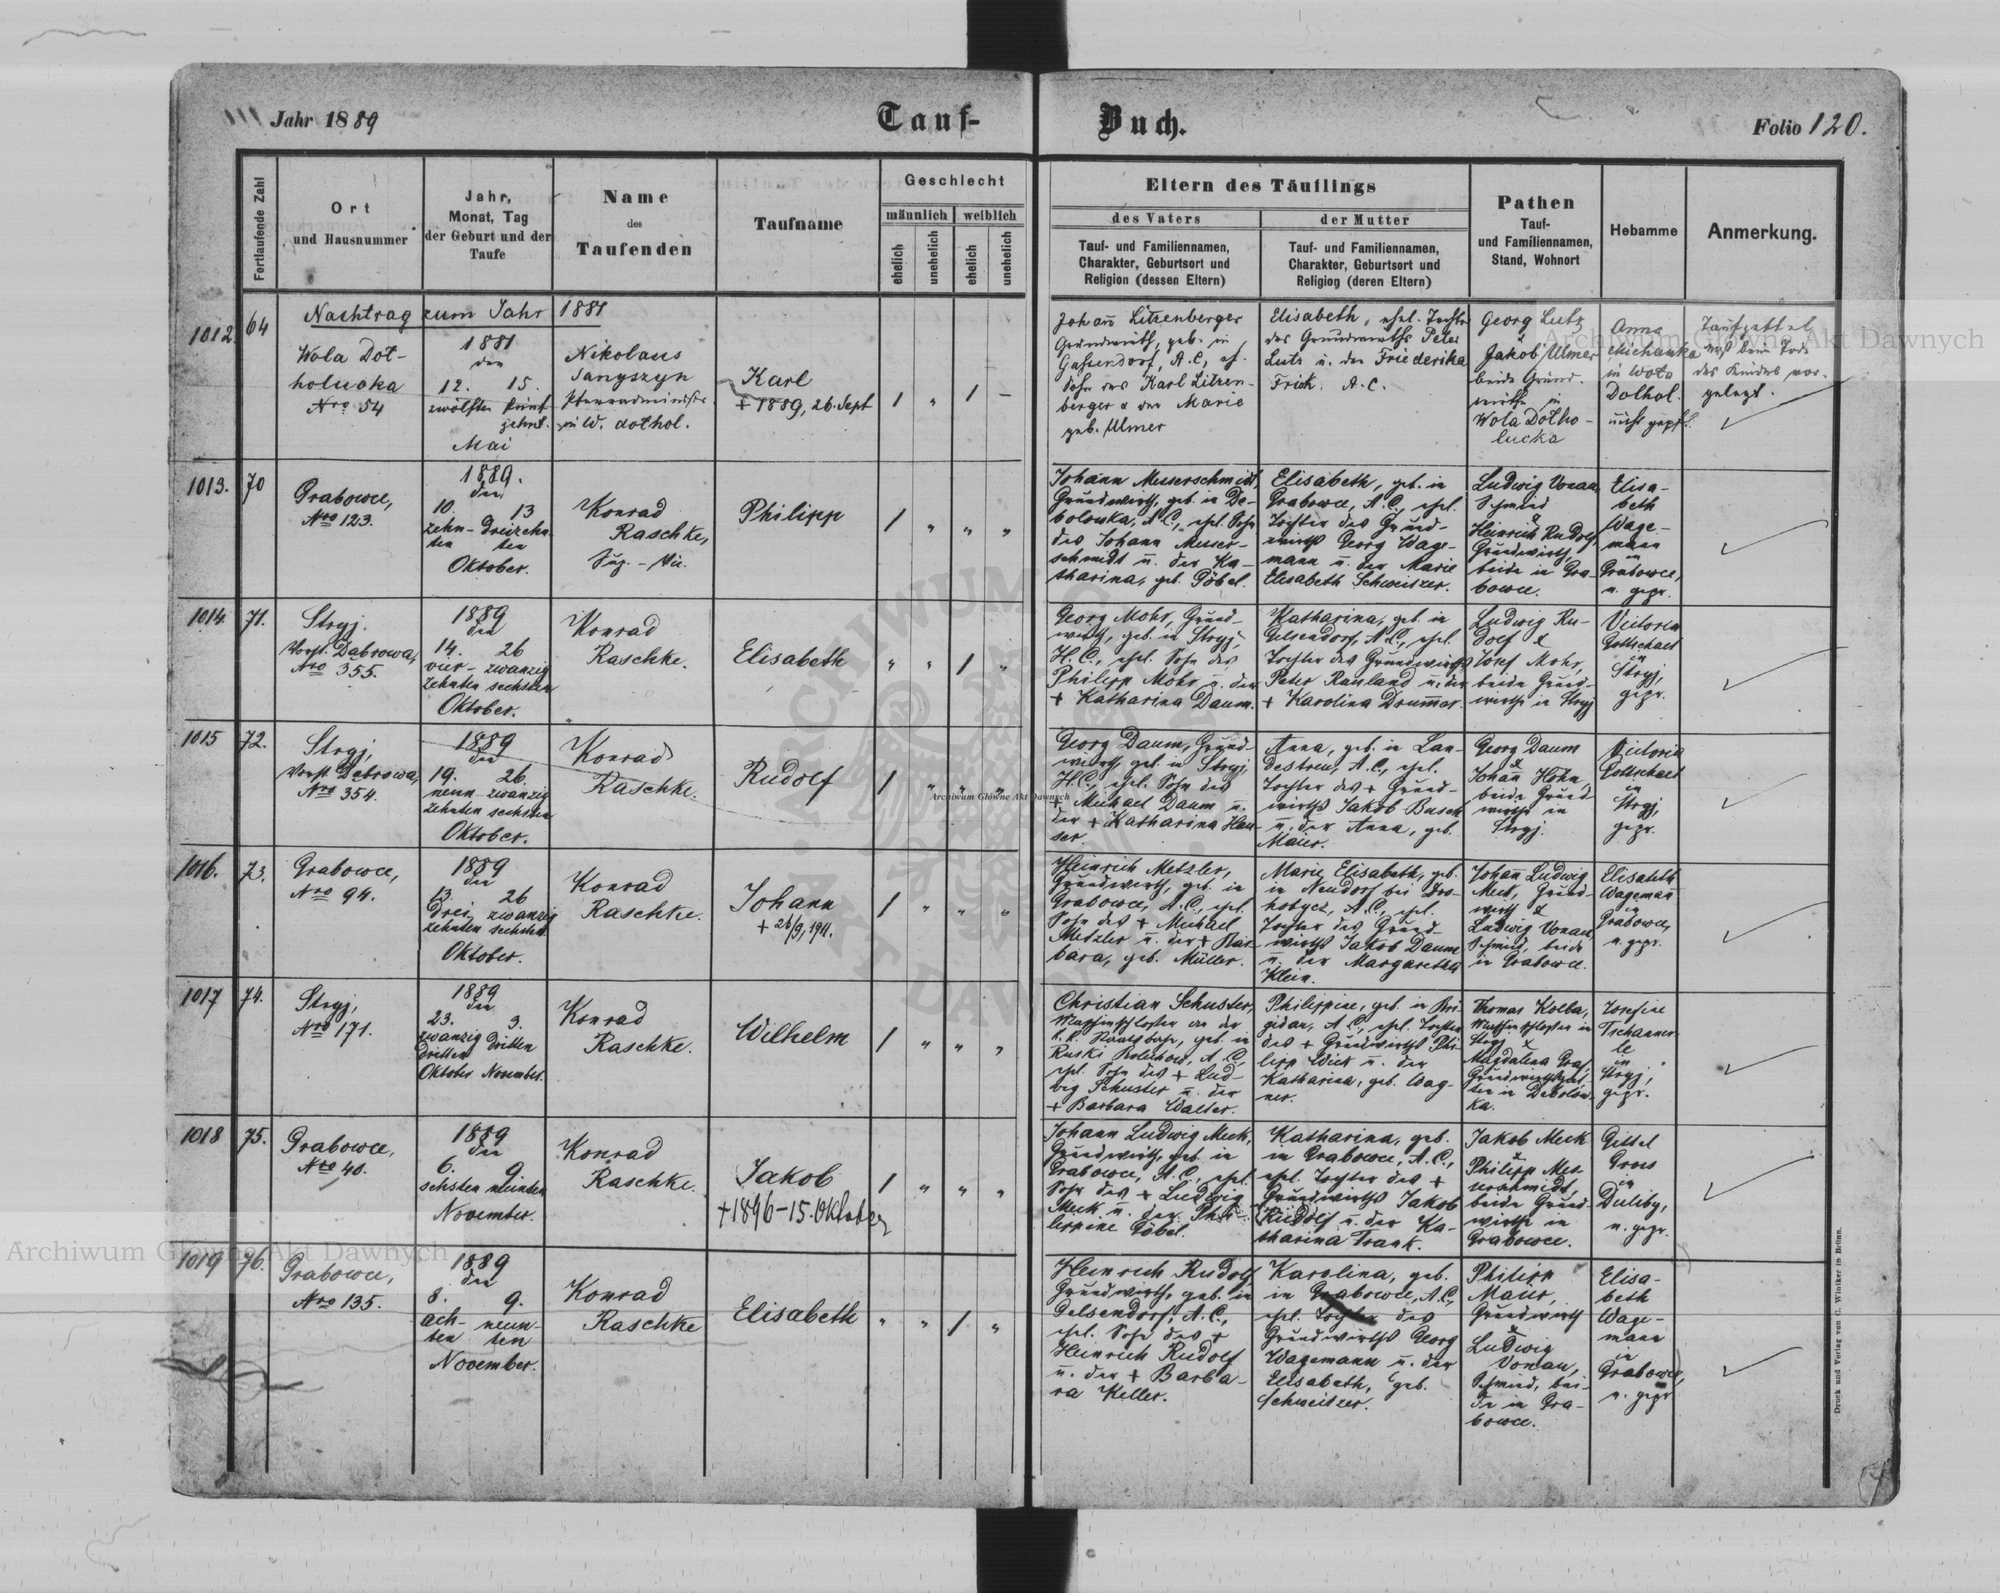 Jahr 1889
Tauf-
Buch.
Folio 120.
Fortlaufende Zahl
Ort
und Hausnummer
Jahr,
Monat, Tag
der Geburt und der
Taufe
Name
des
Taufenden
Taufname
Geschlecht
männlich
weiblich
ehelich
unehelich
ehelich
unehelich
Eltern des Täuflings
des Vaters
Tauf- und Familiennamen,
Charakter, Geburtsort und
Religion (dessen Eltern)
der Mutter
Tauf- und Familiennamen,
Charakter, Geburtsort und
Religion (deren Eltern)
Pathen
Tauf-
und Familiennamen,
Stand, Wohnort
Hebamme
Anmerkung.
1012. 64
Nachtrag zum Jahr 1881
Wola Dot-
holucka
Nro 54
1881
den
12. 15.
zwölften fünf
zehnt.
Mai
Nikolaus
in W. dothol.
Karl
+ 1889, 26. Sept
1 „ 1 –
Johan̄ Litzenberger
Grundwirth, geb. in
Gassendorf, A.C., eh.
Sohn des Karl Litzen-
berger & der Marie
geb. Ulmer
Elisabeth, ehel. Tochter
des Grundwirths Peter
Lutz u. der Friederika
Frick. A.C.
Georg Lutz
&
Jakob Ulmer
beide Grund-
wirthe in
Wola Dotho-
lucka
Anna
Michanka
in Wola
Dothol.
nicht gepr.
Taufzettel
des Kindes vor-
gelegt.
1013. 70
Grabowce,
Nro 123.
1889.
den
10. 13
zehn- dreizehn
ten ten
Oktober.
Konrad
Raschke,
Philipp
1 „ „ „
Johann Messerschmidt
Grundwirth, geb. in De-
bolowka, A.C., ehel. Sohn
des Johann Messer-
schmidt u. der Ka-
tharina, geb. Göbel.
Elisabeth, geb. in
Grabowce, A.C., ehel.
Tochter des Grund-
wirths Georg Wage-
mann u. der Marie
Elisabeth Schweitzer.
Ludwig Vonau,
Schmied
&
Heinrich Rudolf,
Grundwirth,
beide in Gra-
bowce.
Elisa-
beth
Wage-
mann
in
Grabowce,
n. gepr.
1014. 71.
Stryj.
Vorst. Dabrowa,
Nro 355.
1889
den
14. 26
vier- zwanzig
zehnten sechsten
Oktober.
Konrad
Raschke.
Elisabeth
„ „ 1 „
Georg Mohr, Grund-
wirth, geb. in Stryj,
H.C., ehel. Sohn des
Philipp Mohr u. der
+ Katharina Daum.
Katharina, geb. in
Gelsendorf, A.C., ehel.
Tochter des Grundwirths
Peter Rauland u. der
+ Karolina Drum̄er.
Ludwig Ru-
dolf &
Josef Mohr,
beide Grund-
wirthe in Stryj
Victoria
Gottschall
in
Stryj,
gepr.
1015 72.
Stryj,
Vorst. Debrowa,
Nro 354.
1889
den
19. 26.
neun zwanzig
zehnten sechsten
Oktober.
Konrad
Raschke.
Rudolf
1 „ „ „
Georg Daum, Grund-
wirth, geb. in Stryj,
H.C., ehel. Sohn des
+ Michael Daum u.
der + Katharina Hau-
ser.
Anna, geb. in Lan-
destreu, A.C., ehel.
Tochter des + Grund-
wirths Jakob Busch
u. der Anna, geb.
Maier.
Georg Daum
&
Johan̄ Höhn
beide Grund-
wirthe in
Stryj.
Victoria
Gottschall
in
Stryj,
gepr.
1016. 73.
Grabowce,
Nro 94.
1889
den
13. 26
drei zwanzig
zehnten sechsten
Oktober.
Konrad
Raschke.
Johann
+ 26/9, 1911.
1 „ „ „
Heinrich Metzler,
Grundwirth, geb. in
Grabowce, A.C., ehel.
Sohn des + Michael
Metzler u. der + Bar-
bara, geb. Müller.
Marie Elisabeth, geb.
in Neudorf bei Dro-
hobycz, A.C., ehel.
Tochter des Grund-
wirths Jakob Daum
u. der Margaretha
Klein.
Johan̄ Ludwig
Meck, Grund-
wirth &
Ludwig Vonau,
Schmied, beide
in Grabowce.
Elisabeth
Wageman̄
in
Grabowce,
n. gepr.
1017 74.
Stryj,
Nro 171.
1889
den
23. 3.
zwanzig dritten
dritten
Oktober November.
Konrad
Raschke.
Wilhelm
1 „ „ „
Christian Schuster,
Maschinschlosser an der
k.k. Staatsbahn, geb. in
ehel. Sohn des + Lud-
wig Schuster u. der
+ Barbara Walter.
Philippine, geb. in Bri-
gidau, A.C., ehel. Tochter
des + Grundwirths Phi-
lipp Wick u. der
Katharina, geb. Wag-
ner.
Thomas Kolba,
Maschinschlosser in
Stryj &
Magdalena Graf,
Grundwirthsgat-
tin in Debolow-
ka.
Josefine
in
Stryj,
gepr.
1018 75.
Grabowce,
Nro 40.
1889
den
6. 9.
sechsten neunten
November.
Konrad
Raschke.
Jakob
+ 1896 – 15. Oktober
1 „ „ „
Johann Ludwig Meck,
Grundwirth, geb. in
Grabowce, A.C., ehel.
Sohn des + Ludwig
Meck u. der Phi-
lippine Göbel.
Katharina, geb.
in Grabowce, A.C.,
ehel. Tochter des +
Grundwirths Jakob
Rudolf u. der Ka-
tharina Frank.
Jakob Meck
&
Philipp Mes-
serschmidt
beide Grund-
wirthe in
Grabowce.
Gittel
Gross
in
Duliby,
n. gepr.
1019 76.
Grabowce,
Nro 135.
1889
den
8. 9.
ach- neun-
ten ten
November.
Konrad
Raschke
Elisabeth
„ „ 1 „
Heinrich Rudolf
Grundwirth, geb. in
Gelsendorf, A.C.,
ehel. Sohn des +
Heinrich Rudolf
u. der + Barba-
ra Keller.
Karolina, geb.
in Grabowce, A.C.,
ehel. Tochter des
Grundwirths Georg
Wagemann u. der
Elisabeth, geb.
Schweitzer.
Philipp
Maur,
Grundwirth
&
Ludwig
Vonau,
Schmied, bei-
de in Gra-
bowce.
Elisa-
beth
Wage-
mann
in
Grabowce,
n. gepr
Druck und Verlag von C. Winiker in Brünn.
Archiwum Główne Akt Dawnych
Archiwum Główne Akt Dawnych
Archiwum Główne Akt Dawnych